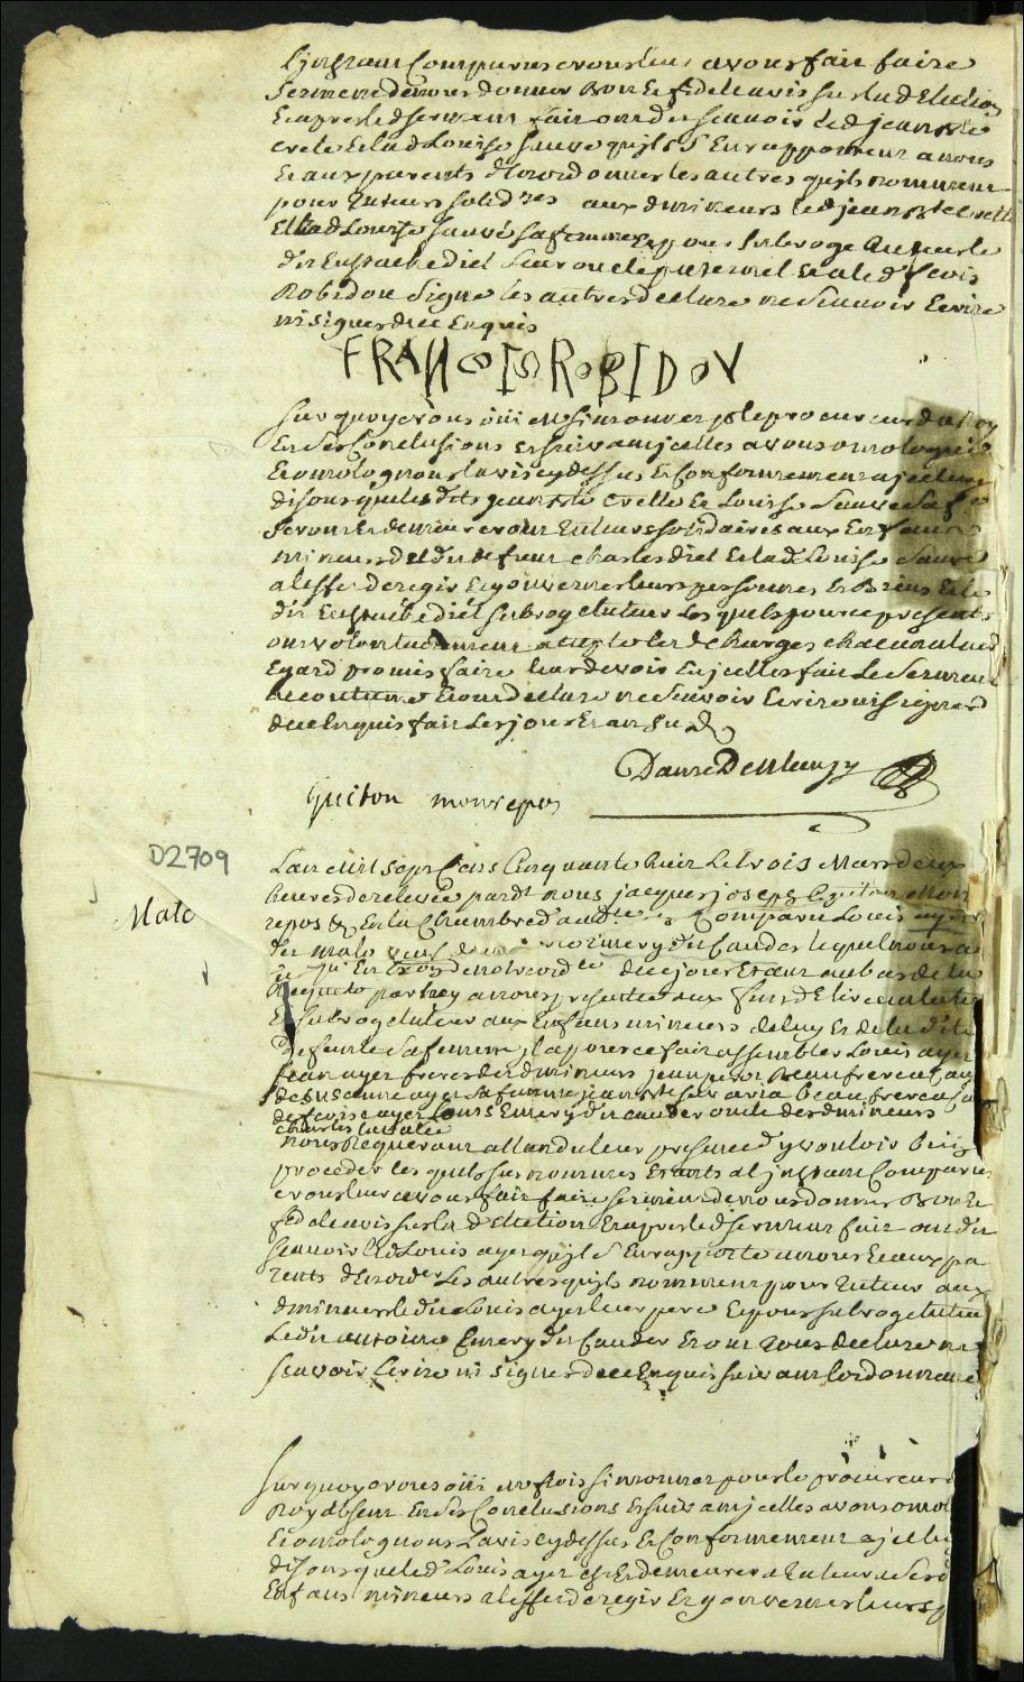 Linstant Comparus avons leur avons fait faire
Serment de nous donner Bon Et fidele avis sur lad Election
Et apres led serment fait ont dit scavoir led jean Bte
crete Et lad Louise sauve quils S En rapportent a nous
Et aux parents d'Enordonner les autres quils nomment
pour Tuteurs solidres aux d mineurs led jean Bte crette
Et lad Louise sauvé sa femme Et pour subroge Tuteur le
dit Eustache diel oncle paternel
Robidou signe les autres declare ne scavoir Ecrire
ni signer de ce Enquis
FRANCOIS ROBIDOV
sur quoy avons oüi me simonnet pr le procureur du Roy
En Ses Conclusions Et suivant jcelles avons omologué
Et omologuons lavis cy dessus Et Conformement a jceluy
disons que lesdits jean Bte crette Et Louise Sauve Sa fe
Seront Et demeureront Tuteurs solidaires aux Enfans
mineurs dud defunt charles diel Et lad Louise Sauve
a leffet de regir Et gouverner leurs personnes Et Biens Et le
dit Eustache diel subrogé tuteur Les quels pour ce presents
ont volontairement accepte les d Charges chacun a leur d
Egard promis faire leur devoir En jcelles fait Le Serment
accoutumé Et ont declaré ne scavoir Ecrire ni signer
de ce Enquis fait Les jour Et an Sud
Danré De Blanzy
Guiton monrepos
D2709
Malo
Lan mil sept Cens Cinquante huit Le trois Mars deux
heures de relevée pardt nous jacques joseph Guiton Mon
repos & En la Chambre d'audce Est Comparu Louis ayer
dit malo veuf de Emery dit Coudes lequel nous a
dit quEn de notre ordce de ce jour Et an au bas de la
Requete par luy a nous presentée aux fins d'Elire un tuteur
Et subrogé tuteur aux Enfans mineurs de luy Et de la dite
defunte Sa femme, jl a pour ce fait assembler Louis ayer
jean ayer freres des d mineurs jean Beaufrere a Cause
de susanne ayer Sa femme jean Bte Beaufrere a Cause
de ayer Louis Emery dit couder oncle des d mineurs
charles
nous Requerant attendu leur presence d y vouloir Bien
proceder les quels sus nommes Et ants a l jnstant Comparus
avons leur avons fait faire serment de nous donner Bon Et
fidele avis sur la d Election Et apres led serment fait ont dit
Scavoir led Louis ayer qujl S En rapporte a nous Et aux pa
rents d'En ordr Les autres quils nomment pour Tuteur aux
d mineurs le dit Louis ayer leur pere Et pour subrogé tuteur
Ledit antoine Emery dit Couder Et ont Tous declaré ne
scavoir Ecrire ni signer de ce Enquis suivant lordonnance
Sur quoy avons oüi me fcois simonnet pour le procureur d
Roy absent En Ses Conclusions Et suivant jcelles avons omol
Et omologuons Lavis cy dessus Et Conformement a jceluy
disons que led Louis ayer Est Et demeurera Tuteur a Ses d
Enfans mineurs a leffet de regir Et gouverner leurs p